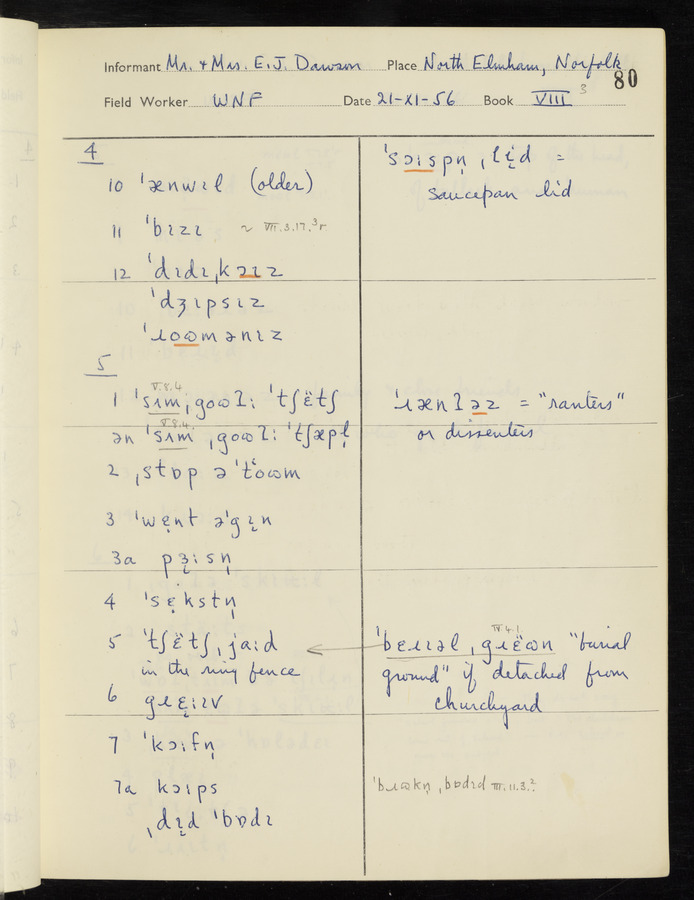 Informant Mr. + Mrs. E. J. Dawson Place North Elmham, Norfolk
80
Field Worker WNF Date 21-XI-56 Book VIII 3
4
10 ˈænwɪl (older)
11 ˈbɪzɪ ~ VII.3.17.³r
12 ˈdɪdɪˌkɔɪz
ˈdʒɪpsɪz
ˈɹoʊmənɪz
5
V.8.4
1 ˈsɪmˌgoʊɪ: ˈtʃɛ̈tʃ
V.8.4.
ən ˈsɪm ˌgoʊɪ: ˈtʃæpl̩
2 ˌstɒp əˈtʊʊm
3 ˈwɛ̣nt əˈgɪ̨n
3a pɜ̨ːsn̩
4 ˈsɛ̨kstn̩
5 ˈtʃɛ̈tʃˌjaːd
in the ring fence
6 gɹɛ̨ːɪv
7 ˈkɔːfn̩
7a kɔɪps
ˌdɪ̨d ˈbɒdɪ
ˈsɔːspn̩ ˌlɪ̨d =
saucepan lid
ˈɹænɪəz = "ranters"
or dissenters
IV.4.1.
ˈbɛɹɪəl ˌgɹɛ̈ʊn "burial
ground" if detached from
churchyard
ˈbɹʊkn̩ ˌbɒdɪd III.11.3.²